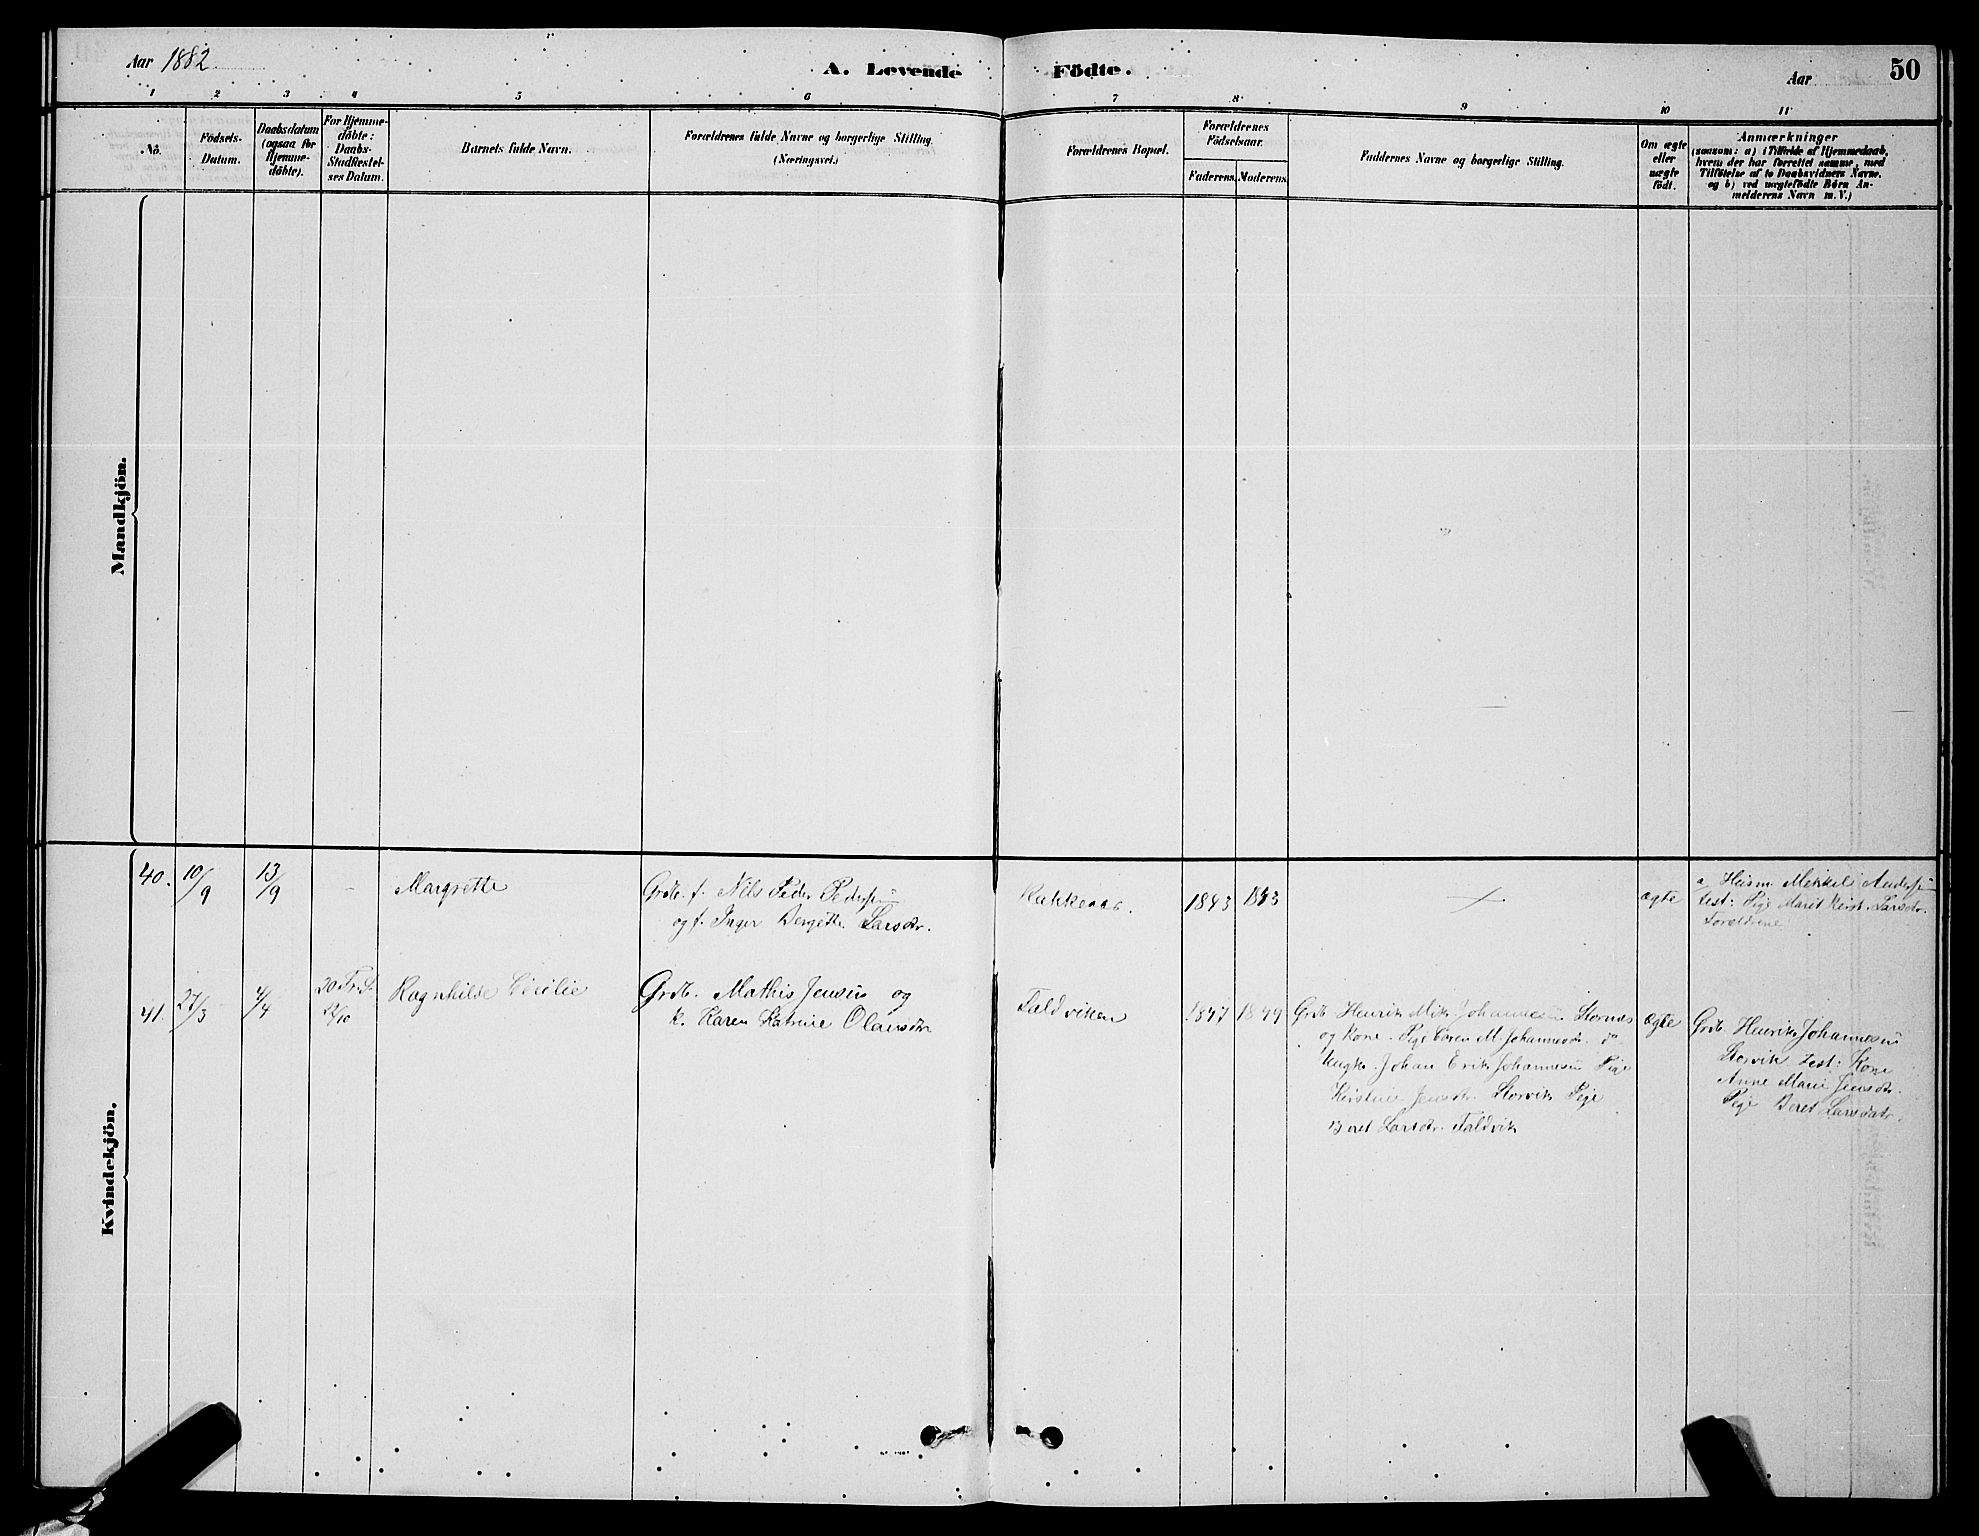 Aar 1882
A. Levende Födte.
Aar
50
1 2 3 4 5 6 7 8 9 10 11
No.
Födsels-
Datum.
Daabsdatum
(ogsaa for
Hjemme-
döbte).
For Hjemme-
döbte:
Daabs-
Stadfæstel-
ses Datum.
Barnets fulde Navn.
Forældrenes fulde Navne og borgerlige Stilling.
(Næringsvei.)
Forældrenes Bopæl.
Forældrenes
Födselsaar.
Faderens. Moderens.
Faddernes Navne og borgerlige Stilling.
Om ægte
eller
uægte
födt.
Anmærkninger
(saasom: a) i Tilfælde af Hjemmedaab,
hvem der har forrettet samme, med
Tilföielse af to Daabsvidners Navne.
og b) ved uægtefödte Börn An-
melderens Navn m. V.)
Mandkjön.
Kvindekjön.
40. 10/9 13/9 - Margrette
Grdb. f. Nils Peder Pedersen
og f. Inger Bergitte Larsdr.
1843 1843
ægte
a, Husm. Mikkel Andersen
test: Pige Marit Kirst. Larsdr.
Foreldrene
41. 27/3 4/4 20 Tr. S.
22/10
Ragnhilde Cecilie
Grdb. Mathis Jensen og
k. Karen Katrine Olausdr
Faldviken
1847 1849
Grdb Henrik Mik Johannesen Stornæs
og Kone. Pige Caren M. Johannesdr. do
Ungk. Johan Erik Johannesen Pige
Kirstine Jensdr. Storvik Pige
Beret Larsdr. Faldvik
ægte
Grdb. Henrik Johannesen
Storvik test: Kone
Anne Marie Jensdr.
Pige Beret Larsdatr.